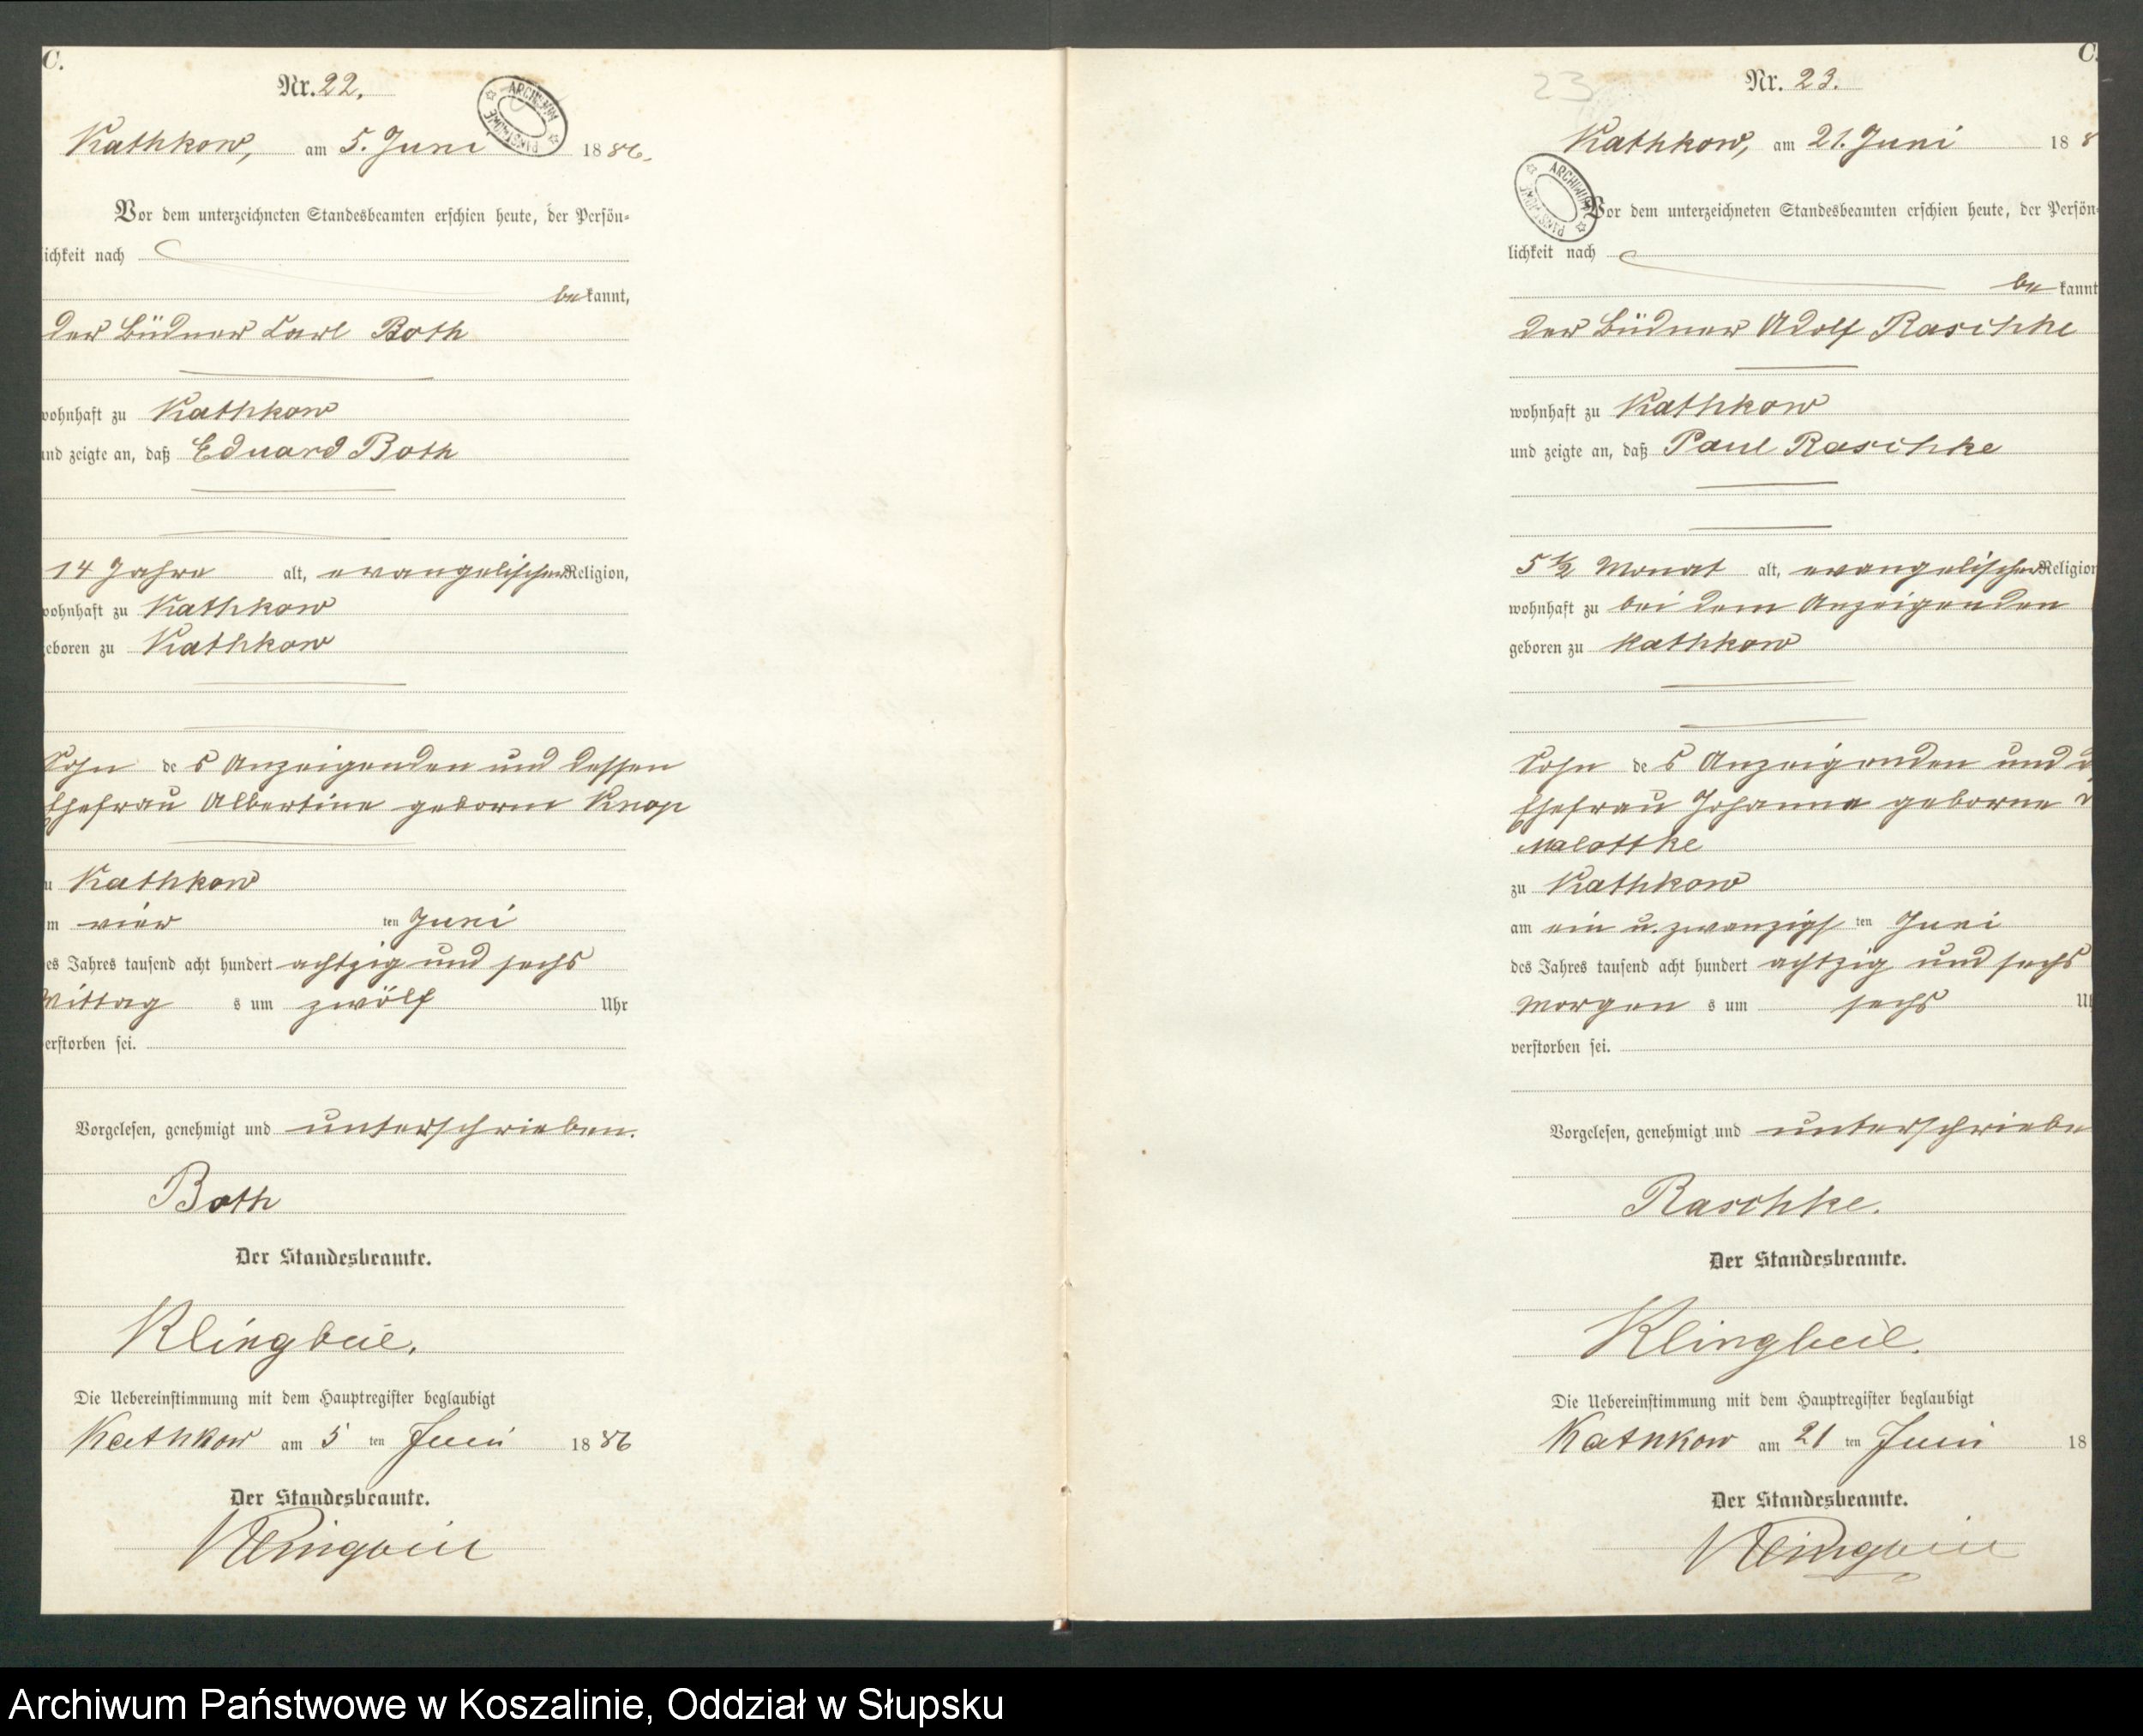 C.
Nr. 22.
ARCHIWUM PAŃSTWOWE
Kathkow, am 5. Juni 1886.
Vor dem unterzeichneten Standesbeamten erschien heute, der Persön-
lichkeit nach
bekannt,
der Büdner Carl Both
wohnhaft zu Kathkow
und zeigte an, daß Eduard Both
14 Jahre alt, evangelischer Religion,
wohnhaft zu Kathkow
geboren zu Kathkow
Sohn des Anzeigenden und dessen
Ehefrau Albertine geborne Knop
zu Kathkow
am vier ten Juni
des Jahres tausend acht hundert achtzig und sechs
Mittag s um zwölf Uhr
verstorben sei.
Vorgelesen, genehmigt und unterschrieben.
Both
Der Standesbeamte.
Klingbeil.
Die Uebereinstimmung mit dem Hauptregister beglaubigt
Kathkow am 5 ten Juni 1886
Der Standesbeamte.
Klingbeil
C.
23
Nr. 23.
ARCHIWUM PAŃSTWOWE
Kathkow, am 21. Juni 188
Vor dem unterzeichneten Standesbeamten erschien heute, der Persön-
lichkeit nach
bekannt
der Büdner Adolf Raschke
wohnhaft zu Kathkow
und zeigte an, daß Paul Raschke
5 1/2 Monat alt, evangelischer Religion
wohnhaft zu bei dem Anzeigenden
geboren zu Kathkow
Sohn des Anzeigenden und
Ehefrau Johanna geborne
Malottke
zu Kathkow
am ein u. zwanzigs ten Juni
des Jahres tausend acht hundert achtzig und sechs
Morgen s um sechs Uh
verstorben sei.
Vorgelesen, genehmigt und unterschriebe
Raschke.
Der Standesbeamte.
Klingbeil.
Die Uebereinstimmung mit dem Hauptregister beglaubigt
Kathkow am 21 ten Juni 18
Der Standesbeamte.
Klingbeil
Archiwum Państwowe w Koszalinie, Oddział w Słupsku